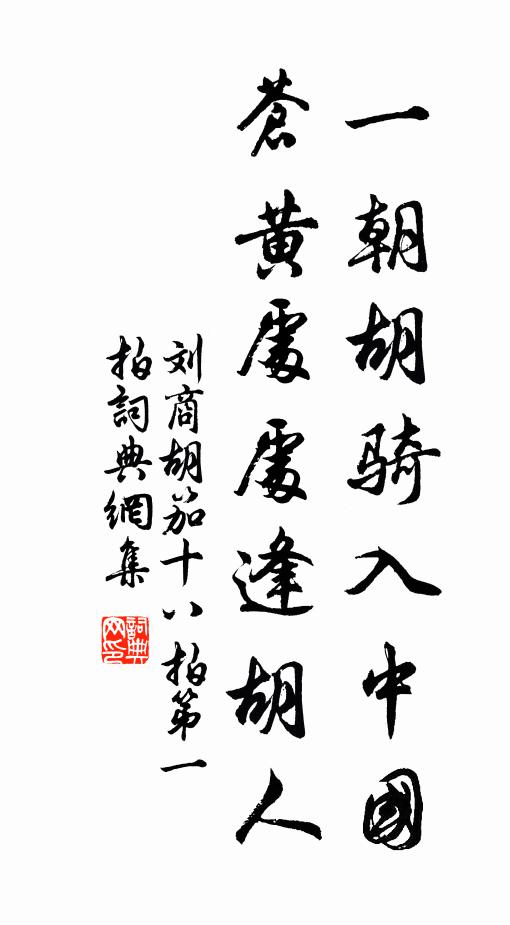 一朝胡骑入中國
蒼黃處處逢胡人
刘商胡笳十八拍第一
拍詞典網集
詞典
网印